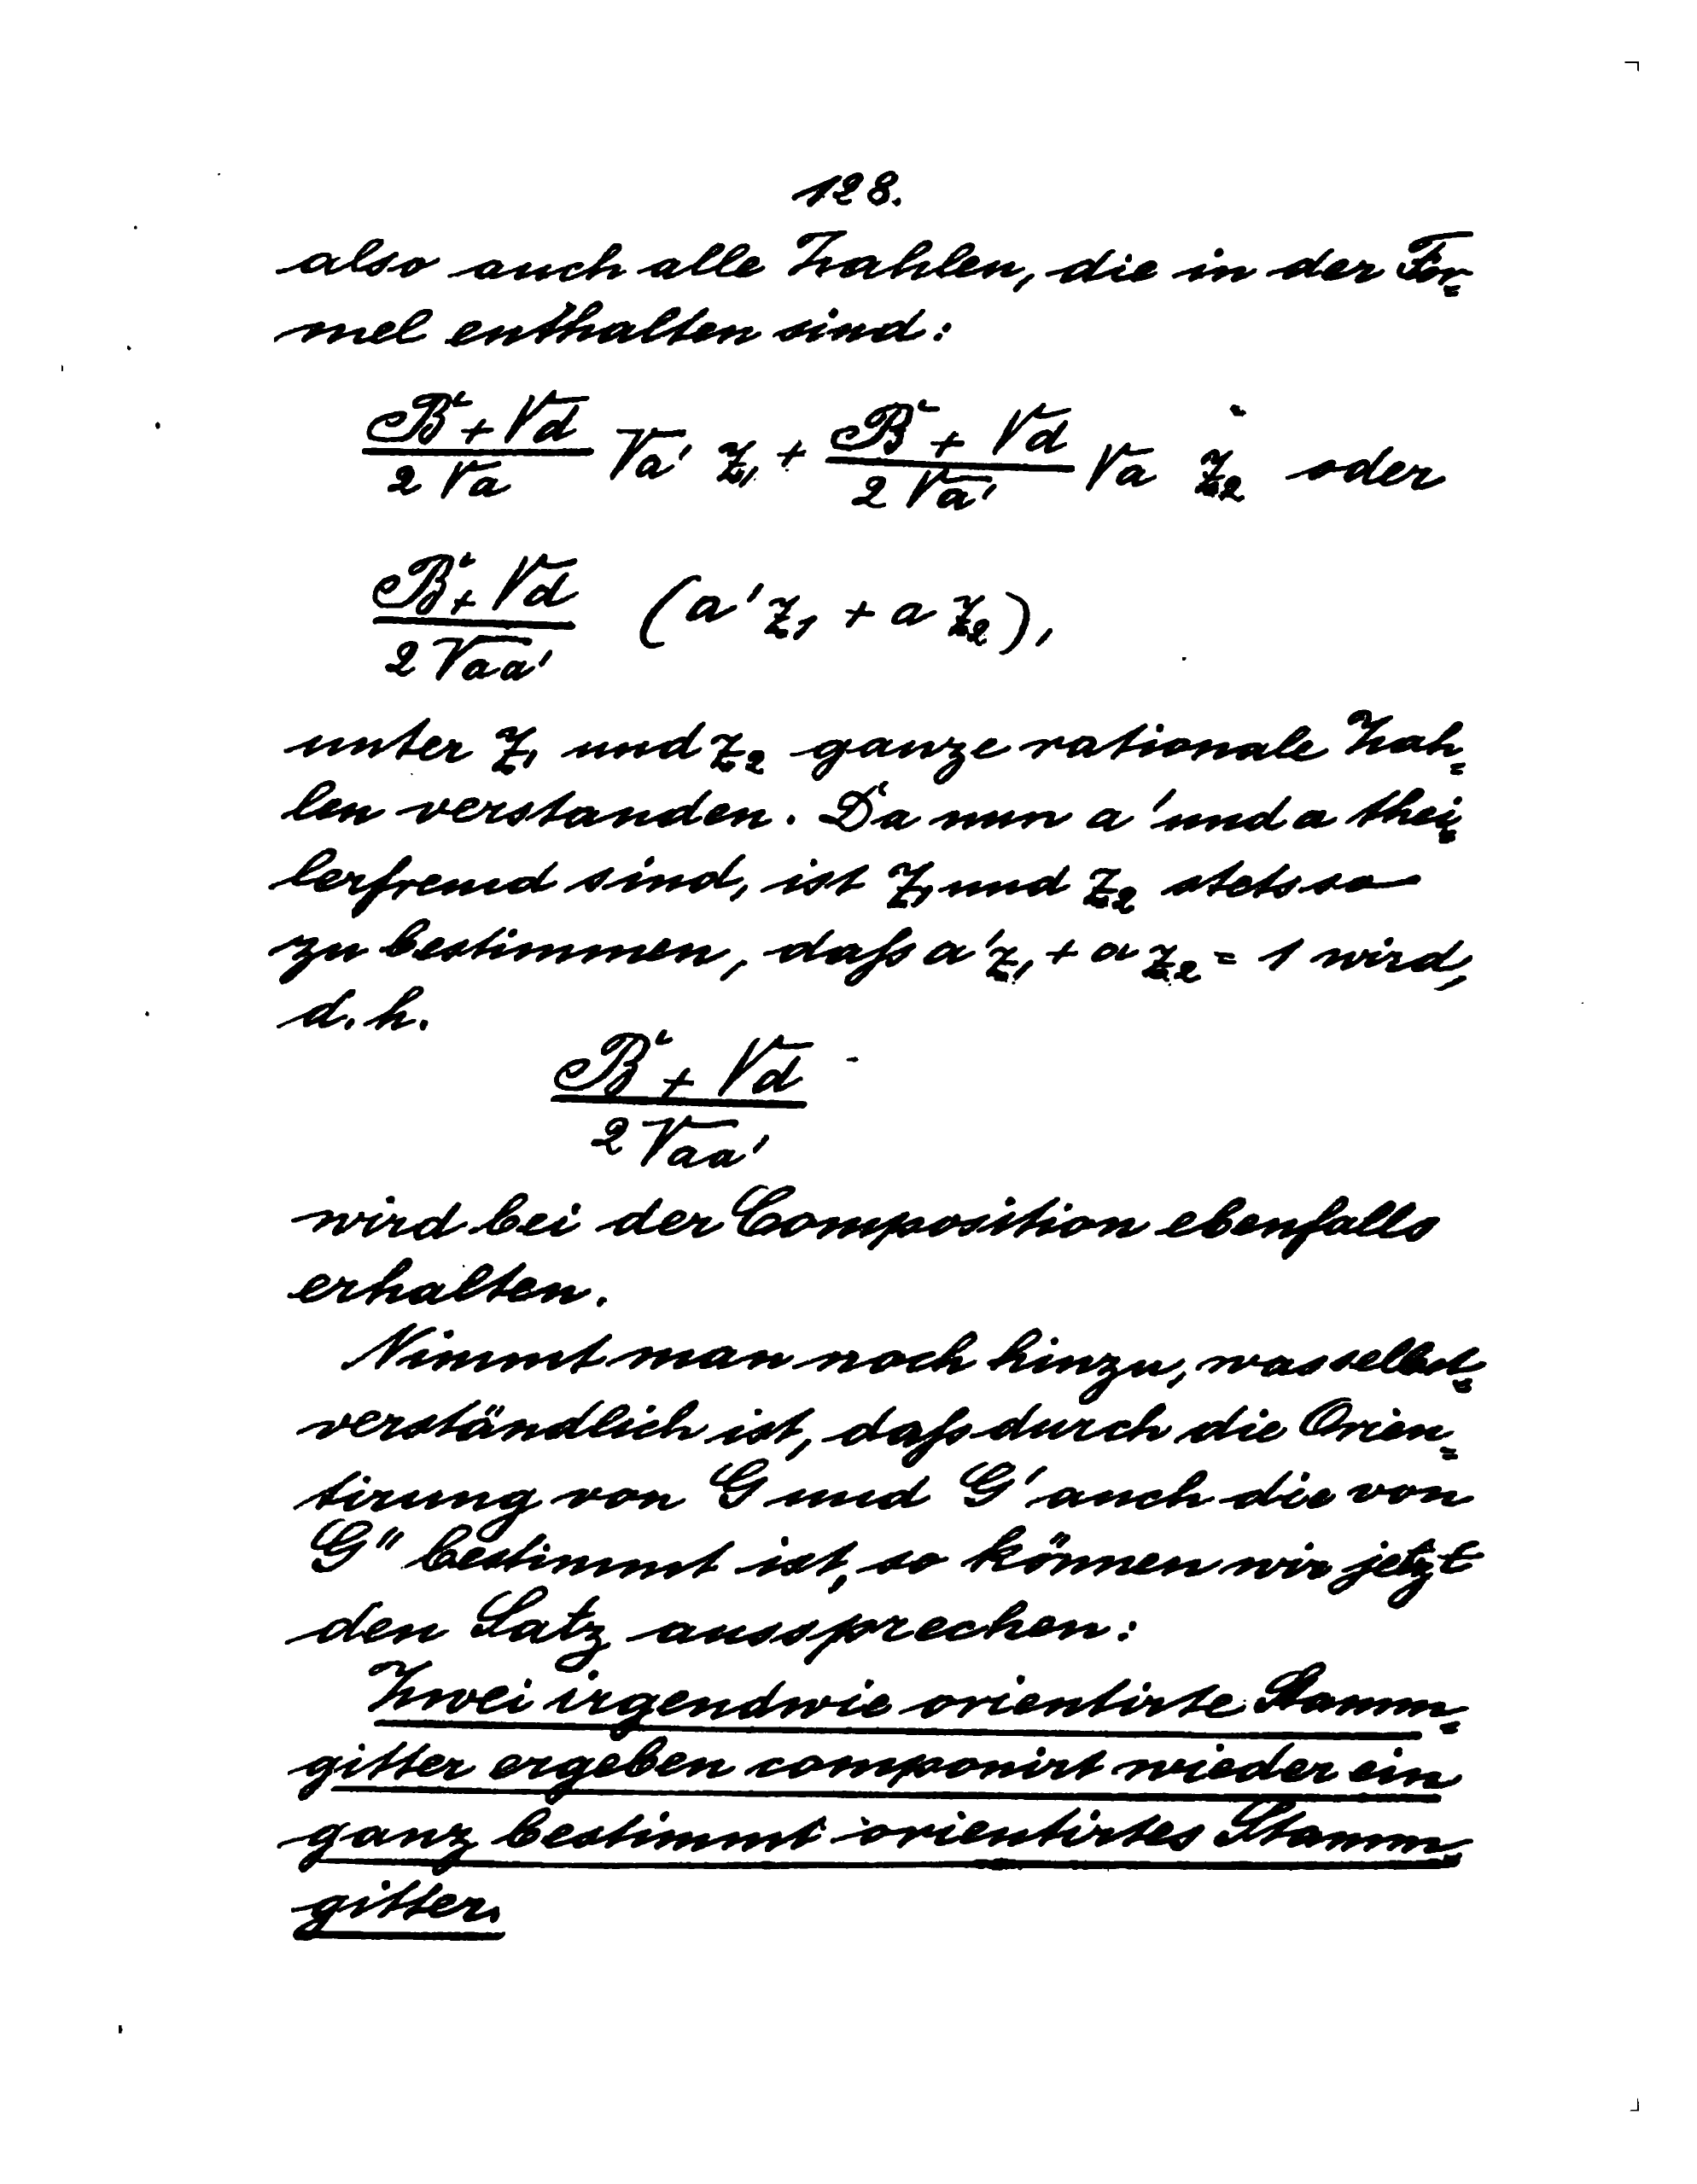 128.
also auch alle Zahlen, die in der For-
mel enthalten sind:
\frac{B + \sqrt{d}}{2\sqrt{a}} \sqrt{a'} z_1 + \frac{B + \sqrt{d}}{2\sqrt{a'}} \sqrt{a} z_2 oder
\frac{B + \sqrt{d}}{2\sqrt{aa'}} (a'z_1 + a z_2),
unter z_1 und z_2 ganze rationale Zah-
len verstanden. Da nun a' und a thei-
lerfremd sind, ist z_1 und z_2 stets so
zu bestimmen, daß a'z_1 + a z_2 = 1 wird,
d. h.
\frac{B + \sqrt{d}}{2\sqrt{aa'}}
wird bei der Composition ebenfalls
erhalten.
Nimmt man noch hinzu, was selbst-
verständlich ist, daß durch die Orien-
tirung von G und G' auch die von
G'' bestimmt ist, so können wir jetzt
den Satz aussprechen:
Zwei irgendwie orientirte Stamm-
gitter ergeben componirt wieder ein
ganz bestimmt orientirtes Stamm-
gitter.